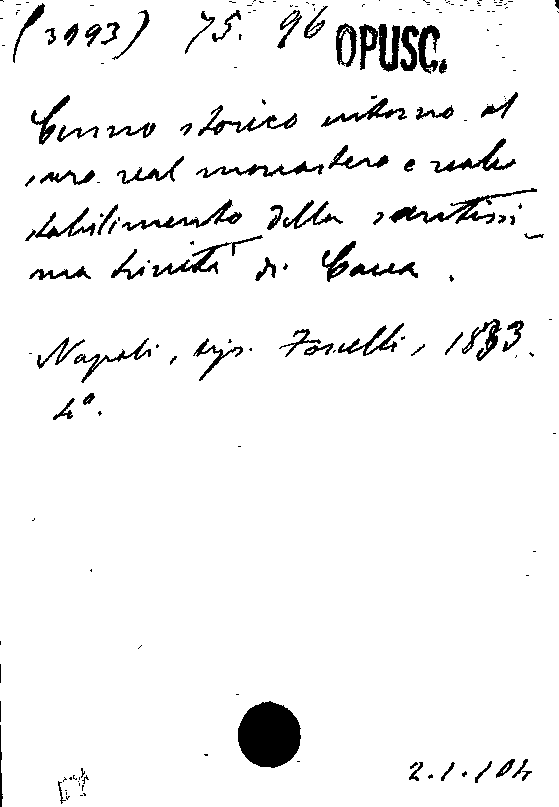 (3993) 75. 96 OPUSC.
Cenno storico intorno al
sacro real monastero e reale
stabilimento della santissi-
ma trinità di Cava.
Napoli, tip. 1833.
4°.
2.1.104